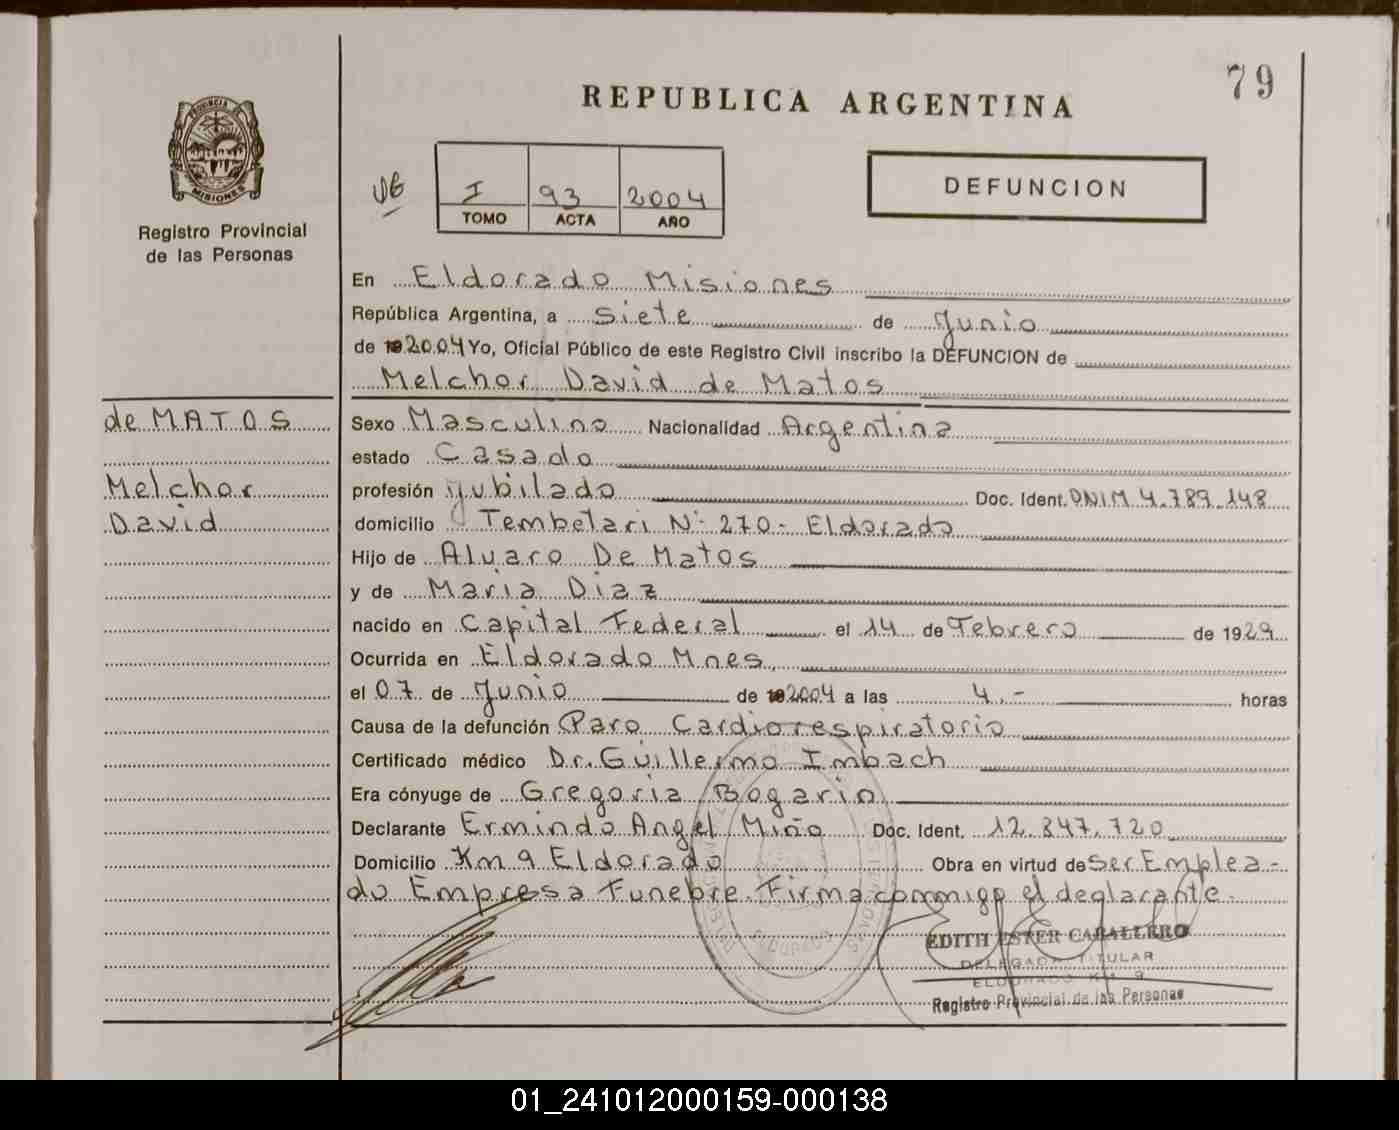 79
REPUBLICA ARGENTINA
PROVINCIA
MISIONES
Registro Provincial
de las Personas
UG
I 93 2004
TOMO ACTA AÑO
DEFUNCION
En Eldorado Misiones
República Argentina, a Siete de Junio
de 2004 Yo, Oficial Público de este Registro Civil inscribo la DEFUNCION de
Melchor David de Matos
de MATOS
Melchor
David
Sexo Masculino Nacionalidad Argentina
estado Casado
profesión jubilado Doc. Ident. DNIM 4.789.148
domicilio Tembetari Nº 270 - Eldorado
Hijo de Alvaro De Matos
y de Maria Diaz
nacido en Capital Federal el 14 de Febrero de 1929
Ocurrida en Eldorado Mnes
el 07 de Junio de 2004 a las 4.- horas
Causa de la defunción Paro Cardiorespiratorio
Certificado médico Dr. Guillermo Imbach
Era cónyuge de Gregoria Bogarin
Declarante Ermindo Angel Miño Doc. Ident. 12.847.720
Domicilio Km 9 Eldorado Obra en virtud de Ser Emplea-
do Empresa Funebre. Firma conmigo el declarante.
EDITH ESTER CABALLERO
DELEGADA TITULAR
ELDORADO KM 9
Registro Provincial de las Personas
01_241012000159-000138